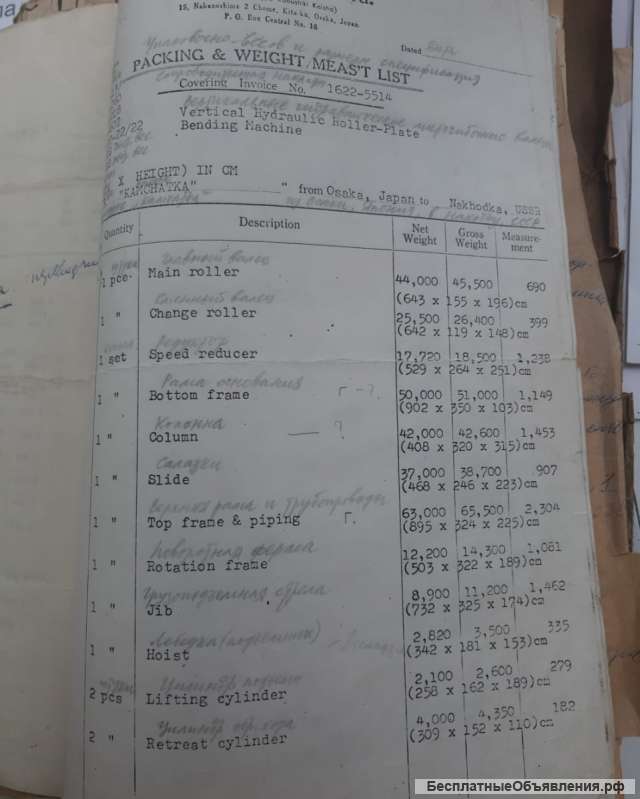 15, Nakanoshima 2 Chome, Kita-ku, Osaka, Japan.
P. O. Box Central No. 16
Dated
PACKING & WEIGHT/MEAS'T LIST
Covering Invoice No. 1622-5514
Vertical Hydraulic Roller-Plate
Bending Machine
-22/22
X HEIGHT) IN CM
"KAMCHATKA" " from Osaka, Japan to Nakhodka, USSR
Quantity Description Net Weight Gross Weight Measurement
Главный валец
1 pce. Main roller 44,000 45,500 690
(643 x 155 x 196)cm
1 " Change roller 25,500 26,400 399
(642 x 119 x 148)cm
Редуктор
1 set Speed reducer 17,720 18,500 1,238
(529 x 264 x 251)cm
Рама основания
1 " Bottom frame Г - ?. 50,000 51,000 1,149
(902 x 350 x 103)cm
Колонка
1 " Column — ? 42,000 42,600 1,453
(408 x 320 x 315)cm
Салазки
1 " Slide 37,000 38,700 907
(468 x 246 x 223)cm
Верхняя рама и трубопроводы
1 " Top frame & piping Г. 63,000 65,500 2,304
(895 x 324 x 225)cm
Поворотная ферма
1 " Rotation frame 12,200 14,300 1,081
(503 x 322 x 189)cm
Грузоподъемная стрела
1 " Jib 8,900 11,200 1,462
(732 x 325 x 174)cm
1 " Hoist 2,820 3,500 335
(342 x 181 x 153)cm
Цилиндр
2 pcs Lifting cylinder 2,100 2,600 279
(258 x 162 x 189)cm
Цилиндр
2 " Retreat cylinder 4,000 4,350 182
(309 x 152 x 110)cm
БесплатныеОбъявления.рф